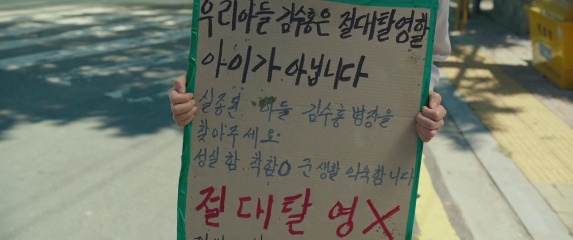 우리아들 김수홍은 절대탈영할
아이가 아닙니다
실종된 아들 김수홍 병장을
찾아주세요
성실함. 착함O 군생활 익숙합니다
절대탈영X